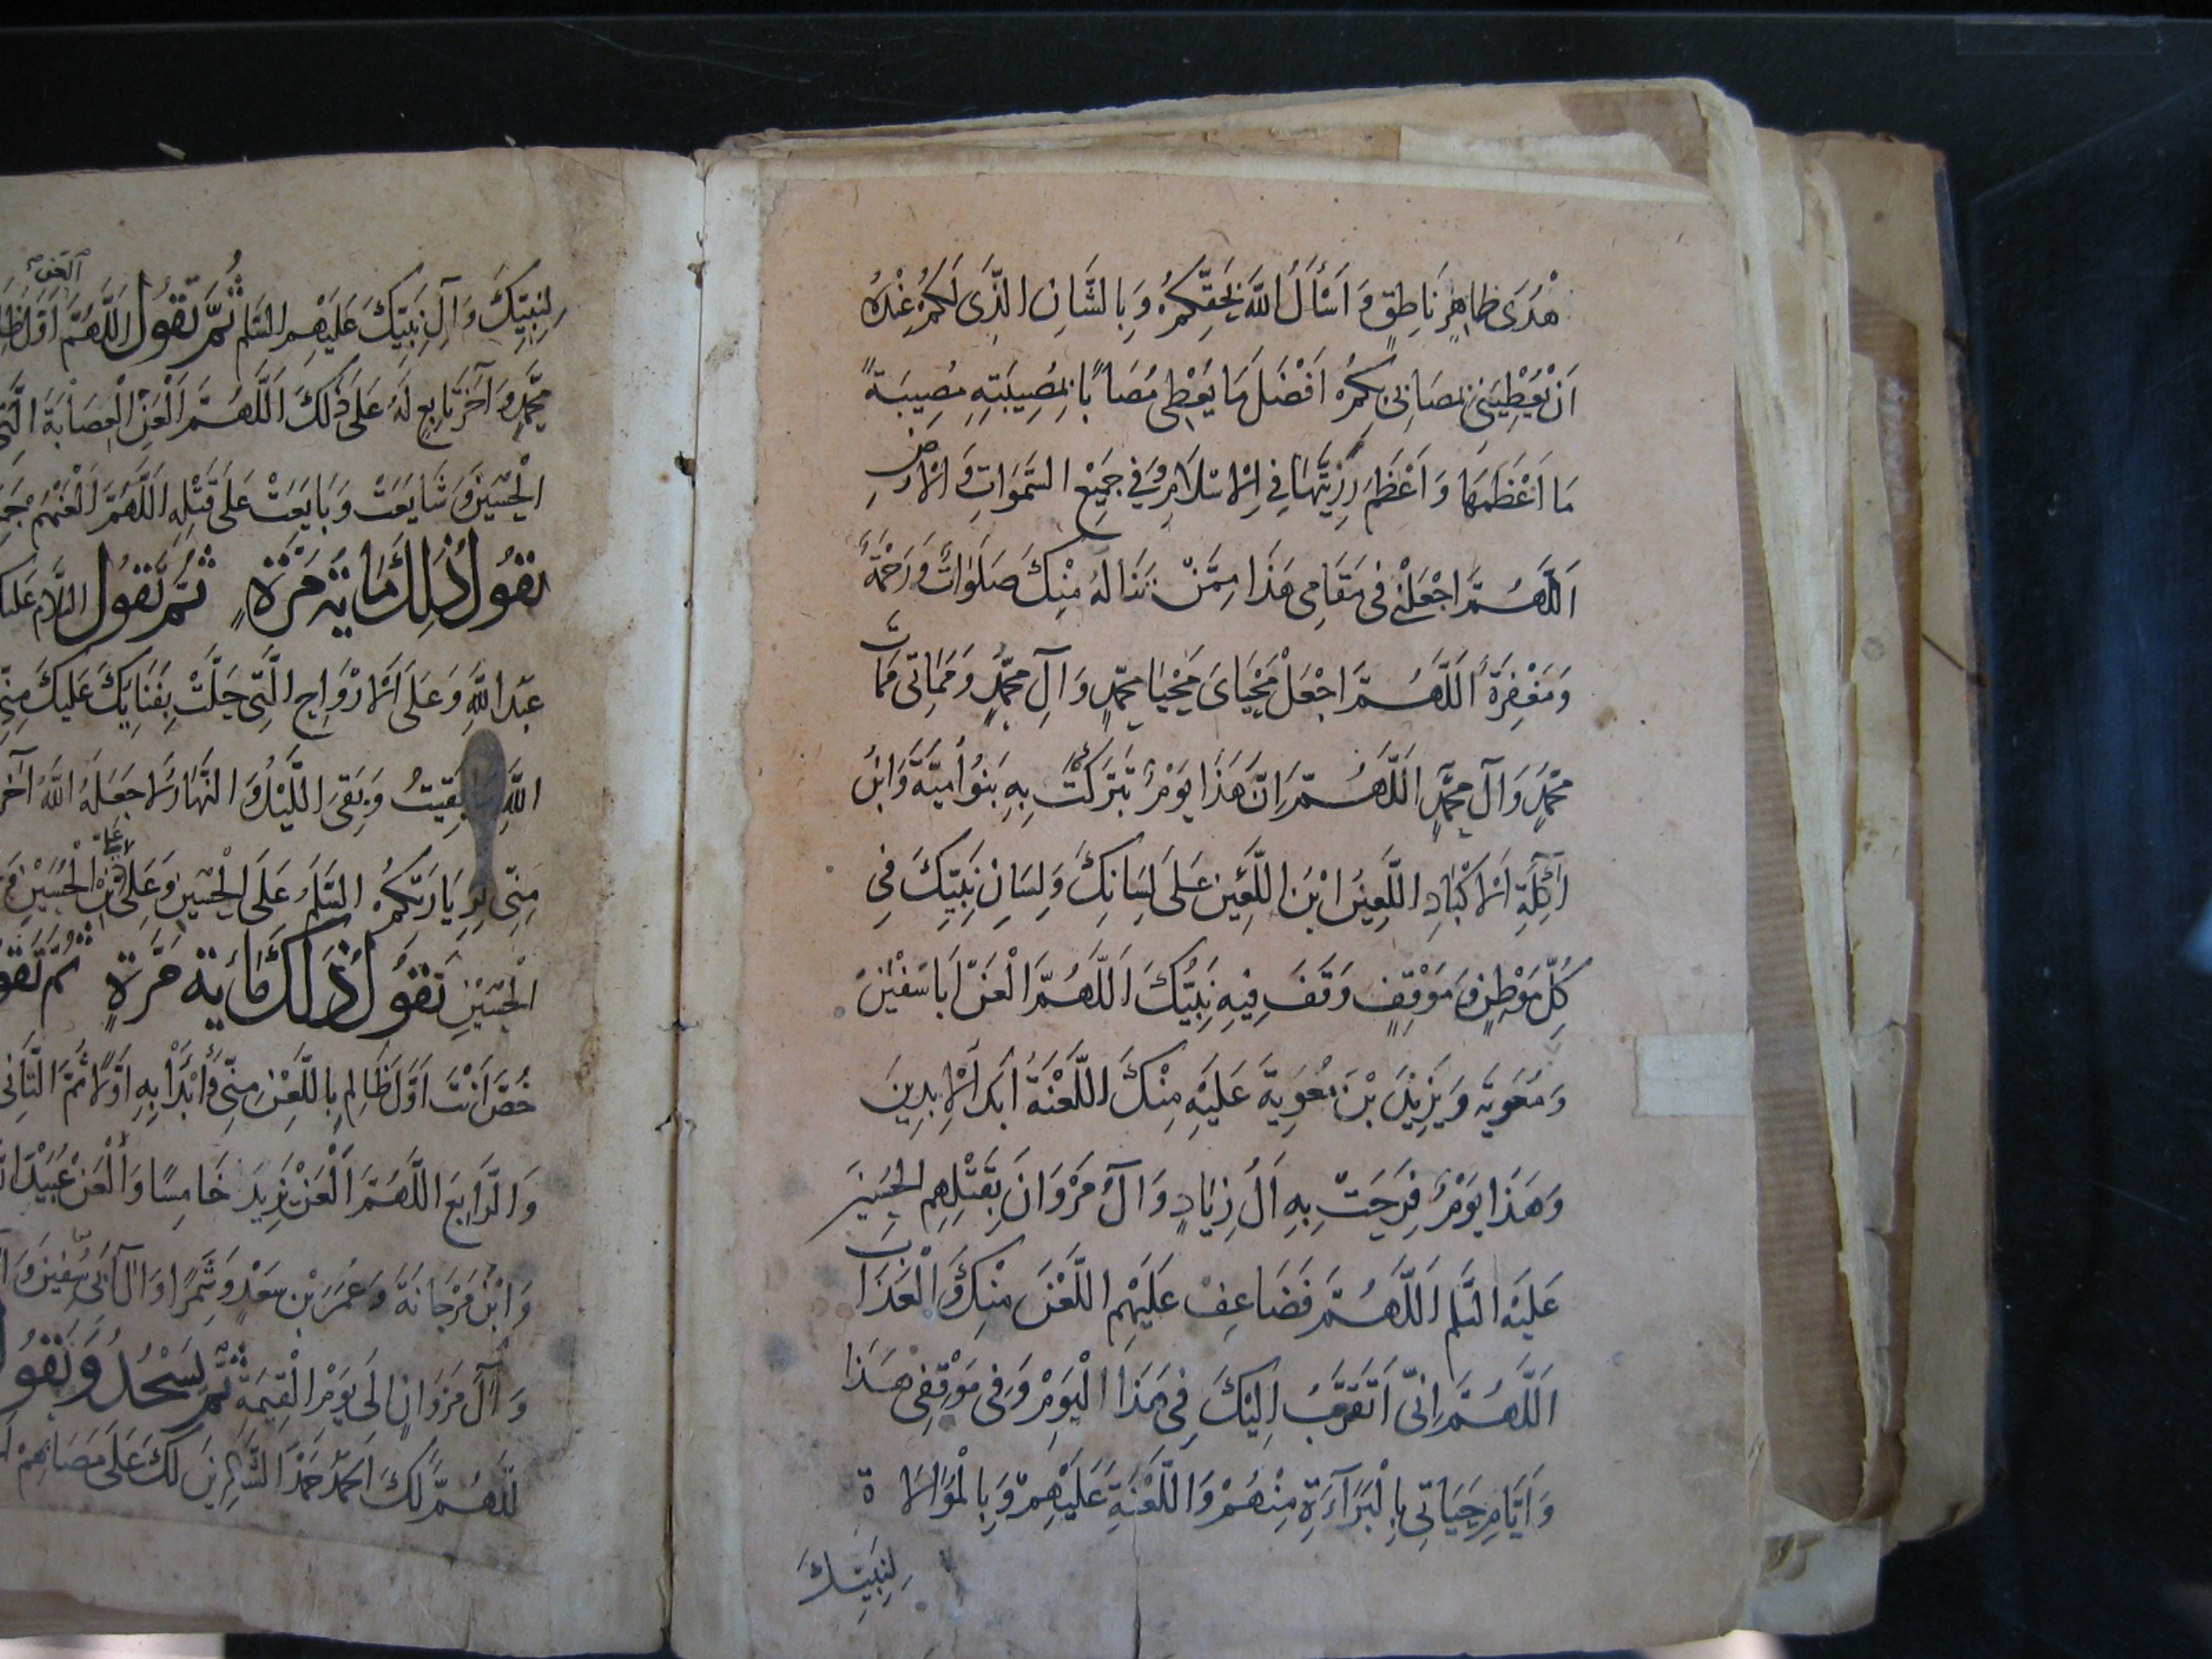 هُدًى ظاهِرٍ نَاطِقٍ وَاَسْأَلُ اللهَ بِحَقِّكُمْ وَبِالشَّانِ الَّذِى لَكُمْ عِنْدَهُ
اَنْ يُعْطِيَنِى بِمُصَابِى بِكُمْ اَفْضَلَ مَا يُعْطِى مُصَابًا بِمُصِيبَتِهِ مُصِيبَةً
مَا اَعْظَمَهَا وَاَعْظَمَ رَزِيَّتَهَا فِى الْاِسْلَامِ وَفِى جَمِيعِ السَّمَوَاتِ وَالْاَرْضِ
اَللَّهُمَّ اجْعَلْنِى فِى مَقَامِى هَذَا مِمَّنْ تَنَالُهُ مِنْكَ صَلَوَاتٌ وَرَحْمَةٌ
وَمَغْفِرَةٌ اَللَّهُمَّ اجْعَلْ مَحْيَاىَ مَحْيَا مُحَمَّدٍ وَآلِ مُحَمَّدٍ وَمَمَاتِى مَمَاتَ
مُحَمَّدٍ وَآلِ مُحَمَّدٍ اَللَّهُمَّ اِنَّ هَذَا يَوْمٌ تَبَرَّكَتْ بِهِ بَنُو اُمَيَّةَ وَابْنُ
اٰكِلَةِ الْاَكْبَادِ اللَّعِينُ ابْنُ اللَّعِينِ عَلَى لِسَانِكَ وَلِسَانِ نَبِيِّكَ فِى
كُلِّ مَوْطِنٍ وَمَوْقِفٍ وَقَفَ فِيهِ نَبِيُّكَ اَللَّهُمَّ الْعَنْ اَبَا سُفْيٰنَ
وَمُعٰوِيَةَ وَيَزِيْدَ بْنَ مُعٰوِيَةَ عَلَيْهِ مِنْكَ اللَّعْنَةُ اَبَدَ الْاٰبِدِينَ
وَهَذَا يَوْمٌ فَرِحَتْ بِهِ اٰلُ زِيَادٍ وَآلُ مَرْوَانَ بِقَتْلِهِمِ الْحُسَيْنَ
عَلَيْهِ السَّلٰم اَللَّهُمَّ فَضَاعِفْ عَلَيْهِمُ اللَّعْنَ مِنْكَ وَالْعَذَابَ
اَللَّهُمَّ اِنِّى اَتَقَرَّبُ اِلَيْكَ فِى هَذَا الْيَوْمِ وَفِى مَوْقِفِى هَذَا
وَاَيَّامِ حَيَاتِى بِالْبَرَآءَةِ مِنْهُمْ وَاللَّعْنَةِ عَلَيْهِمْ وَبِالْمُوَالَاةِ
لِنَبِيِّكَ
لِنَبِيِّكَ وَآلِ نَبِيِّكَ عَلَيْهِمُ السَّلٰم ثُمَّ تَقُولُ اَللَّهُمَّ الْعَنْ اَوَّلَ
مُحَمَّدٍ وَآخِرَ تَابِعٍ لَهُ عَلَى ذٰلِكَ اَللَّهُمَّ الْعَنِ الْعِصَابَةَ الَّتِى
الْحُسَيْنَ وَشَايَعَتْ وَبَايَعَتْ عَلَى قَتْلِهِ اَللَّهُمَّ الْعَنْهُمْ
تَقُولُ ذٰلِكَ مَايَةَ مَرَّةٍ ثُمَّ تَقُولُ السَّلَام
عَبْدِ اللَّهِ وَعَلَى الْاَرْوَاحِ الَّتِى حَلَّتْ بِفِنَايِكَ عَلَيْكَ مِنِّى
اللَّهِ بَقِيتُ وَبَقِىَ اللَّيْلُ وَالنَّهَارُ وَلَا جَعَلَهُ اللَّهُ آخِرَ
مِنِّى لِزِيَارَتِكُمْ السَّلٰمُ عَلَى الْحُسَيْنِ وَعَلَى عَلِىِّ بْنِ الْحُسَيْنِ
الْحُسَيْنِ تَقُولُ ذٰلِكَ مَايَةَ مَرَّةٍ ثُمَّ
خُصَّ اَنْتَ اَوَّلَ ظَالِمٍ بِاللَّعْنِ مِنِّى وَابْدَأْ بِهِ اَوَّلًا ثُمَّ الثَّانِى
وَالرَّابِعَ اللَّهُمَّ الْعَنْ يَزِيدَ خَامِسًا وَالْعَنْ
وَابْنَ مَرْجَانَةَ وَعُمَرَ بْنَ سَعْدٍ وَشِمْرًا وَآلَ اَبِى سُفْيٰنَ
وَآلَ مَرْوَانَ اِلَى يَوْمِ الْقِيٰمَةِ ثُمَّ تَسْجُدُ وَتَقُولُ
اَللَّهُمَّ لَكَ الْحَمْدُ حَمْدَ الشَّاكِرِينَ لَكَ عَلَى مُصَابِهِمْ